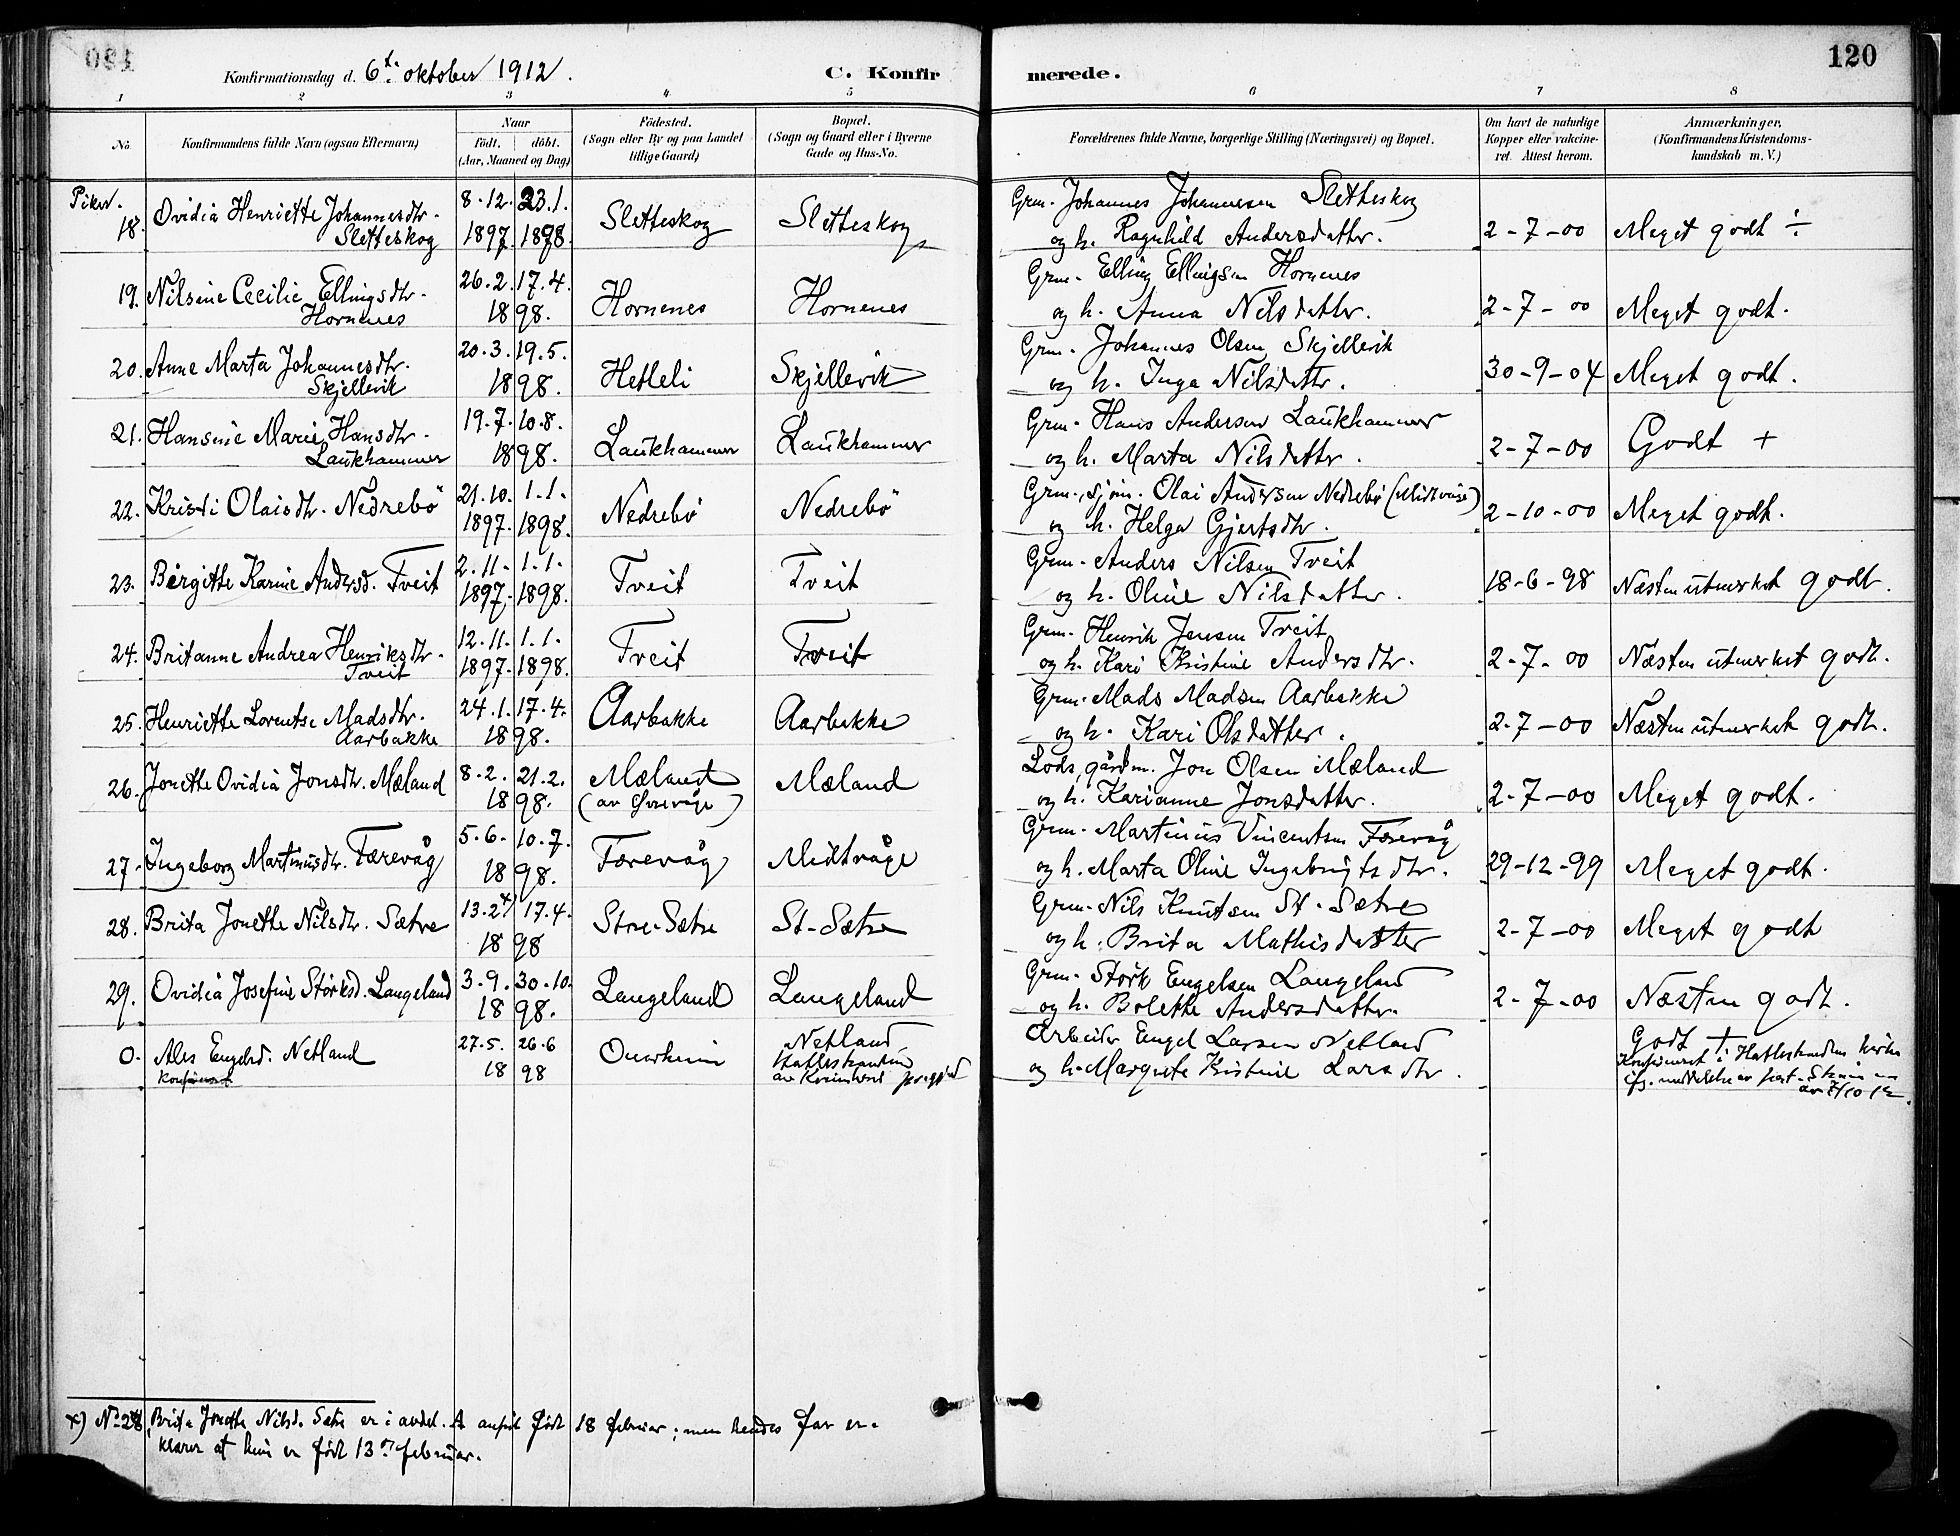 120
Konfirmationsdag d. 6te oktober 1912.
C. Konfirmerede.
1 2 3 4 5 6 7 8
No. Konfirmandens fulde Navn (ogsaa Efternavn) Naar födt. döbt. (Aar, Maaned og Dag) Födested. (Sogn eller By og paa Landet tillige Gaard) Bopæl. (Sogn og Gaard eller i Byerne Gade og Hus-No. Forældrenes fulde Navne, borgerlige Stilling (Næringsvei) og Bopæl. Om havt de naturlige Kopper eller vakcineret. Attest herom. Anmærkninger. (Konfirmandens Kristendomskundskab m. V.)
Piker.
18. Ovidia Henriette Johannesdtr. 8.12. 23.1. Sletteskog Sletteskog Grm. Johannes Johannesen Sletteskog 2-7-00 Meget godt ÷
Sletteskog 1897. 1898. og h. Ragnhild Andersdatter.
19. Nilsine Cecilie Ellingsdtr. 26.2. 17.4. Hornenes Hornenes Grm. Elling Ellingsen Hornenes 2-7-00 Meget godt.
Hornenes 1898. og h. Anna Nilsdatter.
20. Anne Marta Johannesdtr. 20.3. 19.5. Hetleli Skjellevik Grm. Johannes Olsen Skjellevik 30-9-04 Meget godt.
Skjellevik 1898. og h. Inga Nilsdattr.
21. Hansine Marie Hansdtr. 19.7. 10.8. Laukhammer Laukhammer Grm. Hans Andersen Laukhammer 2-7-00 Godt +
Laukhammer 1898. og h. Marta Nilsdatter.
22. Kristi Olaisdtr. Nedrebö 21.10. 1.1. Nedrebö Nedrebö Grm., sjöm. Olai Andersen Nedrebö (Midtvåge) 2-10-00 Meget godt.
1897. 1898. og h. Helga Gjertsdtr.
23. Birgitte Karine Andersd. Tveit 2.11. 1.1. Tveit Tveit Grm. Anders Nilsen Tveit 18-6-98 Næsten utmerket godt.
1897. 1898. og h. Oline Nilsdatter.
24. Britanne Andrea Henriksdtr. 12.11. 1.1. Tveit Tveit Grm. Henrik Jensen Tveit 2-7-00 Næsten utmerket godt.
Tveit 1897. 1898. og h. Kari Kristine Andersdtr.
25. Henriette Lorentse Madsdtr. 24.1. 17.4. Aarbakke Aarbakke Grm. Mads Madsen Aarbakke 2-7-00 Næsten utmerket godt.
Aarbakke 1898. og h. Kari Olsdatter.
26. Jonette Ovidia Jonsdtr. Mæland 8.2. 21.2. Mæland Mæland Lods, gårdm. Jon Olsen Mæland 2-7-00 Meget godt.
1898. og h. Karianne Jonsdatter.
27. Ingeborg Martinusdtr. Færevåg 5.6. 10.7. Færevåg Midtvåge Grm. Martinus Vincentsen Færevåg 29-12-99 Meget godt.
1898. og h. Marta Oline Ingebrigtsdtr.
28. Brita Jonette Nilsdtr. Sætre 13.2 x) 17.4. Store-Sætre St-Sætre Grm. Nils Knutsen St. Sætre 2-7-00 Meget godt
1898 og h. Brita Mathisdatter
29. Ovidia Josefine Störksd. Langeland 3.9. 30.10. Langeland Langeland Grm. Störk Engelsen Langeland 2-7-00 Næsten godt.
1898. og h. Bolette Andersdatter.
0. Ales Engelsd. Netland 27.5. 26.6 Netland Arbeider Engel Larsen Netland Godt +
1898 og h. Margrete Kristine Larsdtr.
Konfirmeret i Hatlestrandens kirke
av 7/10 12.
x) No 28, Brita Jonette Nilsd. Sætre er i avdel. A anfört födt 18 februar; men hendes far er-
klærer at hun er födt 13de februar.